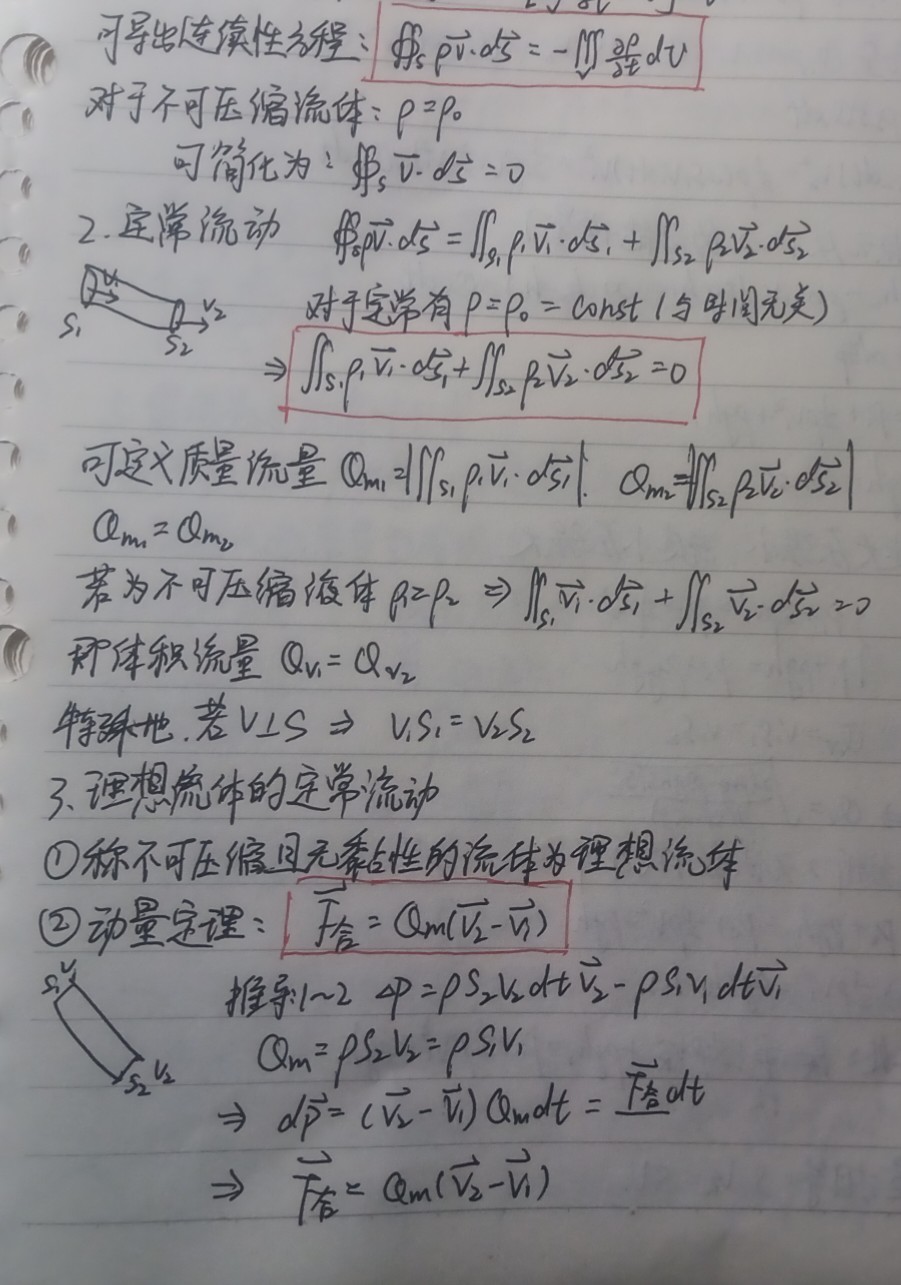 可导出连续性方程: ∯ₛ ρv⃗·ds⃗ = -∭ᵥ ∂ρ/∂t dV
对于不可压缩流体: ρ=ρ₀
可简化为: ∯ₛ v⃗·ds⃗ = 0
2. 定常流动 ∯ₛρv⃗·ds⃗ = ∬s₁ ρ₁v⃗₁·ds⃗₁ + ∬s₂ ρ₂v⃗₂·ds⃗₂
V₁ V₂ S₁ S₂
对于定常有 ρ=ρ₀=const (与时间无关)
⇒ ∬s₁ρ₁v⃗₁·ds⃗₁ + ∬s₂ ρ₂v⃗₂·ds⃗₂ = 0
可定义质量流量 Qm₁=|∬s₁ ρ₁v⃗₁·ds⃗₁|. Qm₂=|∬s₂ ρ₂v⃗₂·ds⃗₂|
Qm₁ = Qm₂
若为不可压缩液体 ρ₁=ρ₂ ⇒ ∬s₁ v⃗₁·ds⃗₁ + ∬s₂ v⃗₂·ds⃗₂ = 0
即体积流量 Qv₁ = Qv₂
特殊地.若V⊥S ⇒ V₁S₁ = V₂S₂
3、理想流体的定常流动
①称不可压缩且无黏性的流体为理想流体
②动量定理: F⃗合 = Qm(v⃗₂-v⃗₁)
S₁ V₁ S₂ V₂
推导:1~2 ΔP = ρS₂V₂dt v⃗₂ - ρS₁V₁dt v⃗₁
Qm = ρS₂V₂ = ρS₁V₁
⇒ dp⃗ = (v⃗₂-v⃗₁)Qmdt = F⃗合dt
⇒ F⃗合 = Qm(v⃗₂-v⃗₁)